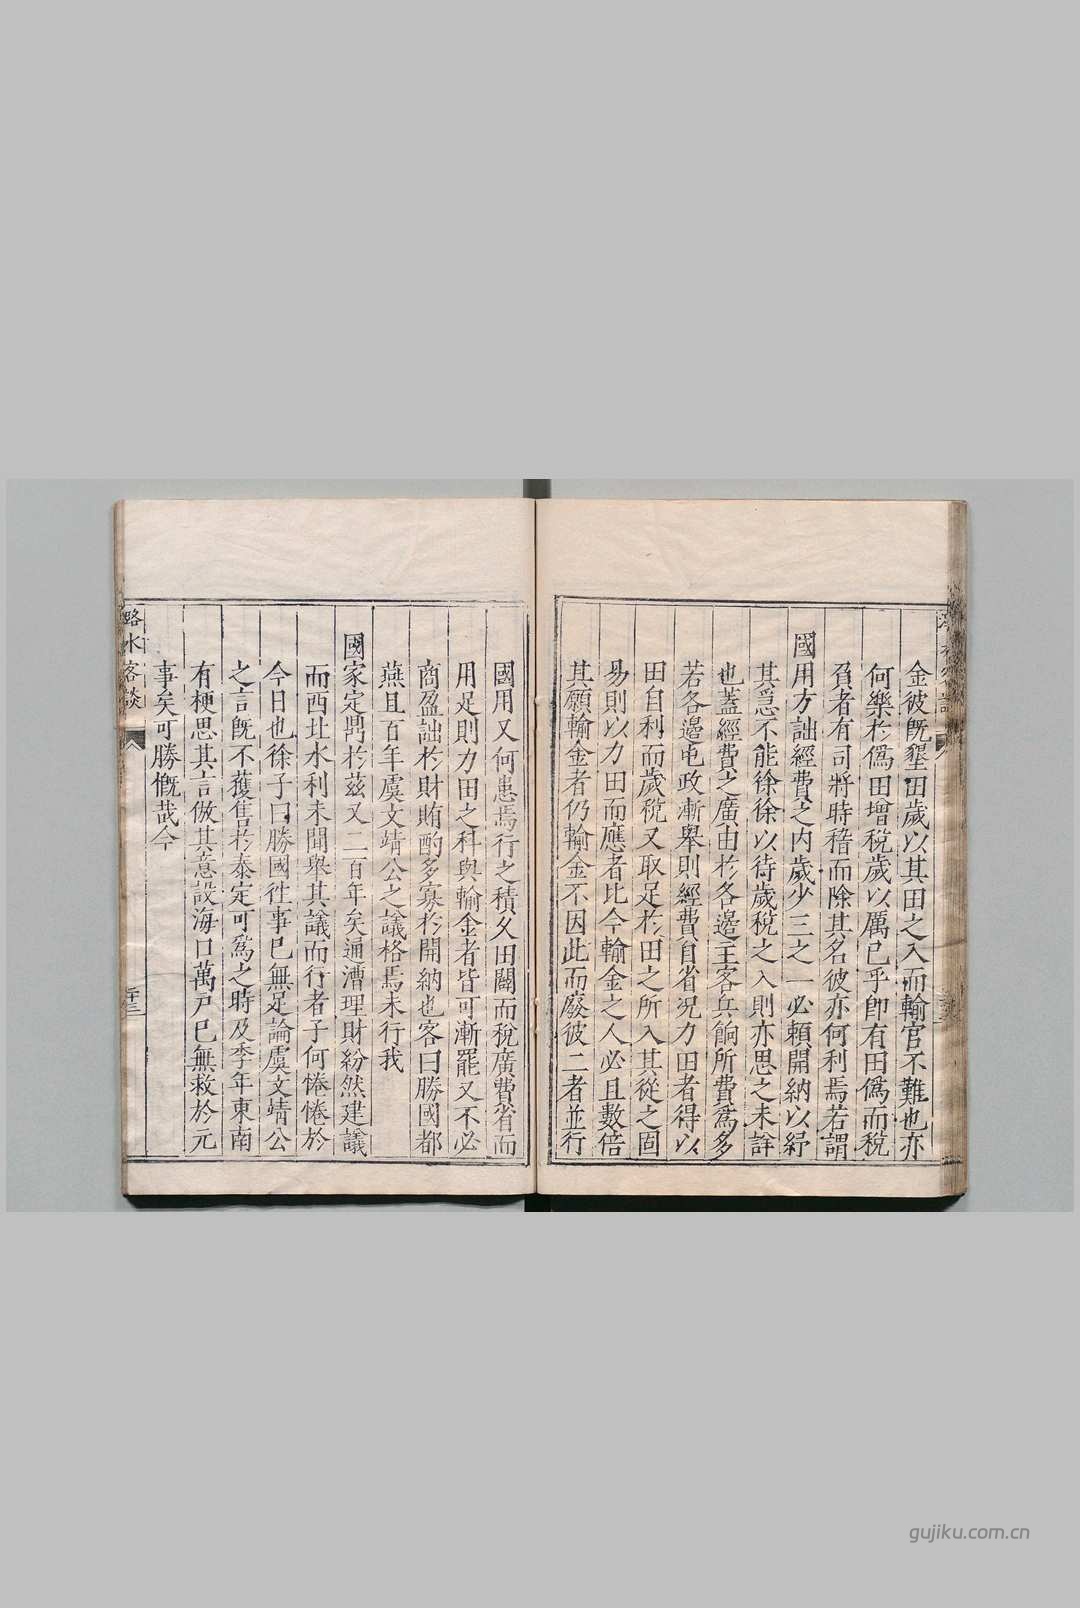 金彼既墾田歲以其田之入而輸官不難也亦
何樂於僞田增稅歲以厲已乎卽有田僞而稅
負者有司將時稽而除其名彼亦何利焉若謂
國用方詘經費之內歲少三之一必賴開納以紓
其急不能徐徐以待歲稅之入則亦思之未詳
也蓋經費之廣由於各邊主客兵餉所費爲多
若各邊屯政漸舉則經費自省况力田者得以
田自利而歲稅又取足於田之所入其從之固
易則以力田而應者比今輸金之人必且數倍
其願輸金者仍輸金不因此而廢彼二者並行
國用又何患焉行之積久田闢而稅廣費省而
用足則力田之科與輸金者皆可漸罷又不必
商盈詘於財賄酌多寡於開納也客曰勝國都
燕且百年虞文靖公之議格焉未行我
國家定鼎於茲又二百年矣通漕理財紛然建議
而西北水利未聞舉其議而行者子何惓惓於
今日也徐子曰勝國徃事已無足論虞文靖公
之言旣不獲售於泰定可爲之時及季年東南
有梗思其言倣其意設海口萬戶已無救於元
事矣可勝慨哉今
潞水客談
二十三
gujiku.com.cn